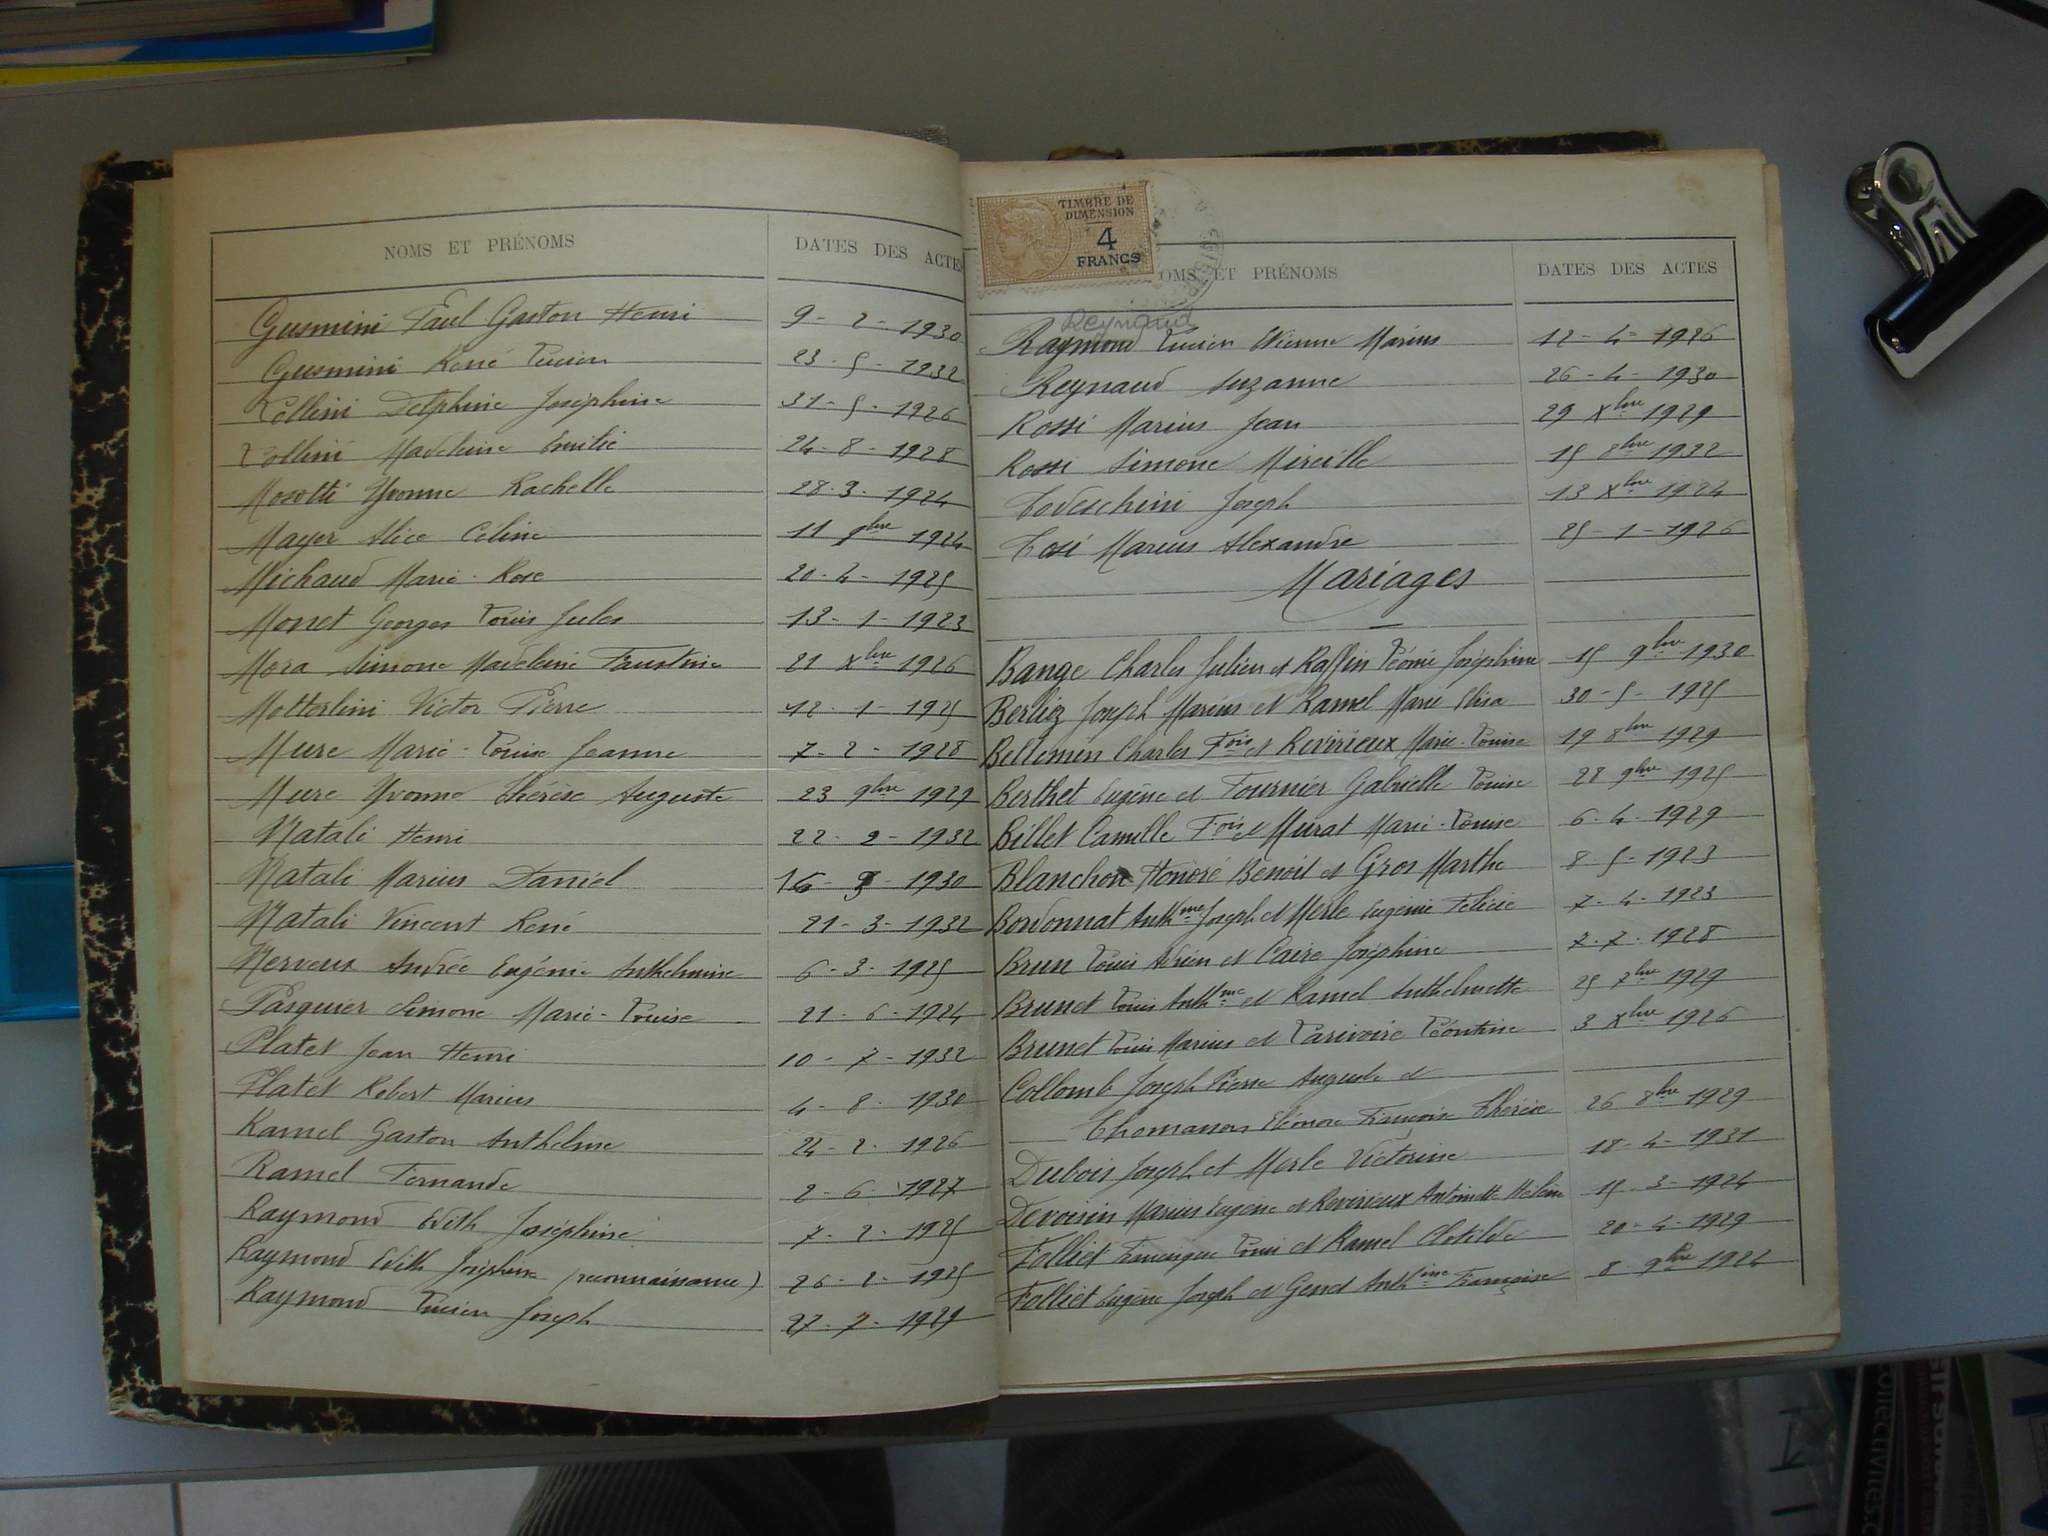 NOMS ET PRÉNOMS
DATES DES ACTE
Gusmini Paul Gaston Henri 9 - 2 - 1930
Gusmini René Lucien 23 - 5 - 1932
Lollini Delphine Joséphine 31 - 5 - 1926
Lollini Madeleine Emilie 24 - 8 - 1928
Mosotti Yvonne Rachelle 28 - 3 - 1924
Mayer Alice Céline 11 9bre 1924
Michaud Marie-Rose 20 - 4 - 1925
Monet Georges Louis Jules 13 - 1 - 1923
Mora Simone Madeleine Faustine 21 Xbre 1926
Motterlini Victor Pierre 12 - 1 - 1925
Mure Marie-Louise Jeanne 7 - 2 - 1928
Mure Yvonne Thérèse Auguste 23 9bre 1929
Natali Henri 22 - 2 - 1932
Natali Marius Daniel 16 - - 1930
Natali Vincent René 21 - 3 - 1932
Nerveux Andrée Eugénie Anthelmine 6 - 3 - 1925
Pasquier Simone Marie-Louise 21 - 6 - 1924
Platet Jean Henri 10 - 7 - 1932
Platet Robert Marius 4 - 8 - 1930
Ramel Gaston Anthelme 24 - 2 - 1926
Ramel Fernande 2 - 6 - 1927
Raymond Edith Joséphine 7 - 2 - 1925
Raymond Edith Joséphine (reconnaissance) 26 - 2 - 1925
Raymond Lucien Joseph 27 - 7 - 1929
TIMBRE DE
DIMENSION
4
FRANCS
OMS ET PRÉNOMS
DATES DES ACTES
Reynaud
Raymond Lucien Etienne Marius 12 - 4 - 1926
Reynaud Suzanne 26 - 4 - 1930
Rossi Marius Jean 29 Xbre 1929
Rossi Simone Mireille 15 8bre 1932
Todeschini Joseph 13 Xbre 1924
Tosi Marius Alexandre 25 - 1 - 1926
Mariages
Bange Charles Julien et Raffin Léonie Joséphine 15 9bre 1930
Berlioz Joseph Marius et Ramel Marie Elisa 30 - 5 - 1925
Bellemin Charles Fois et Revirieux Marie-Louise 19 8bre 1929
Berthet Eugène et Fournier Gabrielle Louise 28 9bre 1925
Billet Camille Fois et Murat Marie-Louise 6 - 4 - 1929
Blanchon Honoré Benoit et Gros Marthe 8 - 5 - 1923
Bordonnat Anthme Joseph et Merle Eugénie Félicie 7 - 4 - 1923
Brun Louis Adrien et Caire Joséphine 7 - 7 - 1928
Brunet Louis Anthme et Ramel Anthelmette 25 7bre 1929
Brunet Louis Marius et Larivoire Léontine 3 Xbre 1926
Collomb Joseph Pierre Auguste et
Thomasson Eléonore Françoise Thérèse 26 8bre 1929
Dubois Joseph et Merle Victorine 18 - 4 - 1931
Devoisin Marius Eugène et Revirieux Antoinette Hélène 15 - 3 - 1924
Folliet Louis et Ramel Clotilde 20 - 4 - 1929
Folliet Eugène Joseph et Genet Anthme Françoise 8 - 9bre 1924